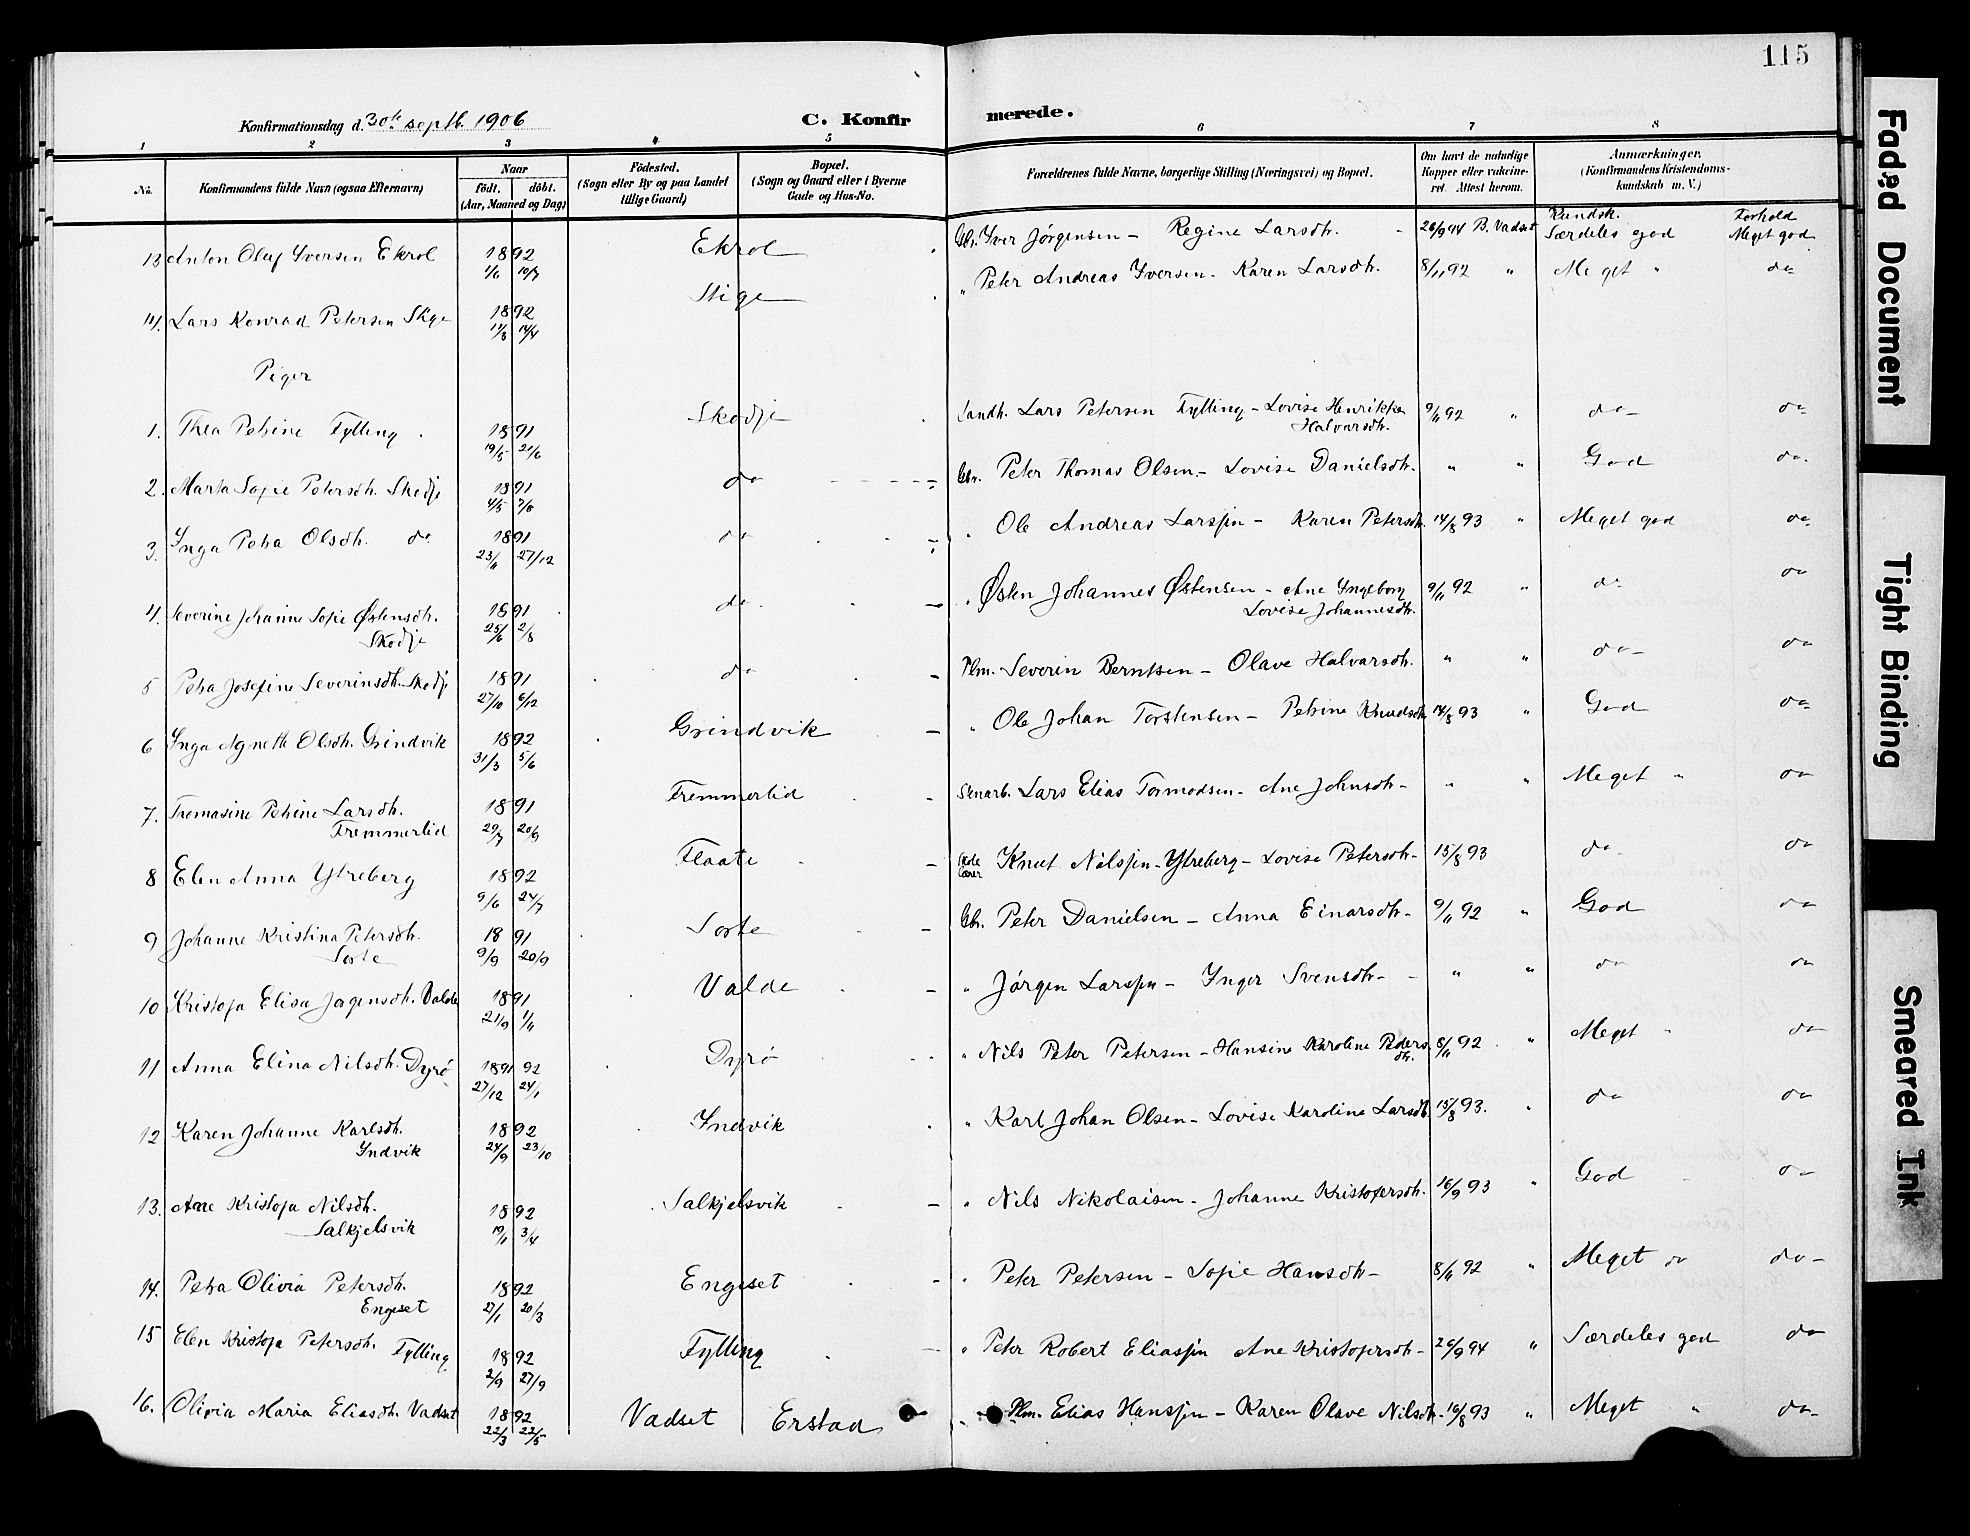 115
Konfirmationsdag d. 30te septb. 1906
C. Konfirmerede.
1 2 3 4 5 6 7 8
No. Konfirmandens fulde Navn (ogsaa Efternavn) Naar født. døbt. (Aar, Maaned og Dag) Fødested. (Sogn eller By og paa Landet tillige Gaard) Bopæl. (Sogn og Gaard eller i Byerne Gade og Hus-No. Forældrenes fulde Navne, borgerlige Stilling (Næringsvei) og Bopæl. Om havt de naturlige Kopper eller vakcineret. Attest herom. Anmærkninger. (Konfirmandens Kristendomskundskab m. V.)
Kundsk. Forhold
13 Anton Oluf Iversen Ekrol 1892 1/6 10/7 Ekrol Gbr. Iver Jørgensen - Regine Larsdtr. 26/9 94 B. Vadset Særdeles god Meget god
14. Lars Konrad Petersen Stige 1892 17/3 14/4 Stige " Peter Andreas Iversen - Karen Larsdtr. 8/11 92 " Meget " do
Piger
1. Thea Petrine Fylling 1891 19/5 21/6 Skodje Landh. Lars Petersen Fylling - Lovise Henrikke Halvarsdtr. 9/11 92 " do do
2. Marta Sofie Petersdtr. Skodje 1891 4/5 7/6 do Gbr. Peter Thomas Olsen - Lovise Danielsdtr. " " God do
3. Inga Petra Olsdtr. do 1891 23/11 27/12 do " Ole Andreas Larssen - Karen Petersdtr. 14/8 93 " Meget god do
4. Severine Johanne Sofie Østensdtr. Skodje 1891 25/6 2/8 do " Østen Johannes Østensen - Ane Ingeborg Lovise Johannesdtr. 9/11 92 " do do
5 Petra Josefine Severinsdtr. Skodje 1891 27/10 6/12 do Plm. Severin Berntsen - Olave Halvarsdtr. " " do do
6 Inga Agnethe Olsdtr. Grindvik 1892 31/3 5/6 Grindvik " Ole Johan Torstensen - Petrine Knudsdtr. 14/8 93 " God do
7. Tomasine Petrine Larsdtr. Fremmerlid 1891 29/7 20/9 Fremmerlid Stenarb. Lars Elias Tormodsen - Ane Johnsdtr. " " Meget " do
8 Elen Anna Ytreberg 1892 9/6 24/7 Flaate Skolelærer Knut Nilssen Ytreberg - Lovise Petersdtr. 15/8 93 do do
9 Johanne Kristina Petersdtr. Sorte 1891 9/9 20/9 Sorte Gbr. Peter Danielsen - Anna Einarsdtr. 9/11 92 " God do
10 Kristofa Elisa Jørgensdtr. Valde 1891 21/9 1/11 Valde " Jørgen Larssen - Inger Svensdtr. " " do do
11 Anna Elina Nilsdtr. Dyrø 1891 92 27/12 24/1 Dyrø " Nils Peter Petersen - Hansine Karoline Pedersdtr. 8/11 92 " Meget " do
12 Karen Johanne Karlsdtr. Indvik 1892 24/9 23/10 Indvik " Karl Johan Olsen - Lovise Karoline Larsdtr. 15/8 93. " do do
13. Ane Kristofa Nilsdtr. Salkjelsvik 1892 19/1 3/4 Salkjelsvik " Nils Nikolaisen - Johanne Kristofersdtr. 16/9 93 " God do
14. Petra Olivia Petersdtr. Engeset 1892 27/1 20/3 Engeset " Peter Petersen - Sofie Hansdtr. 8/11 92 " Meget do do
15 Elen Kristofa Petersdtr. Fylling 1892 2/9 27/9 Fylling " Peter Robert Eliassen Ane Kristofersdtr. 26/9 94 " Særdeles god do
16. Olivia Maria Eliasdtr. Vadset 1892 22/3 22/5 Vadset Erstad Plm. Elias Hanssen - Karen Olave Nilsdtr. 16/8 93 " Meget " do
Faded Document
Tight Binding
Smeared Ink